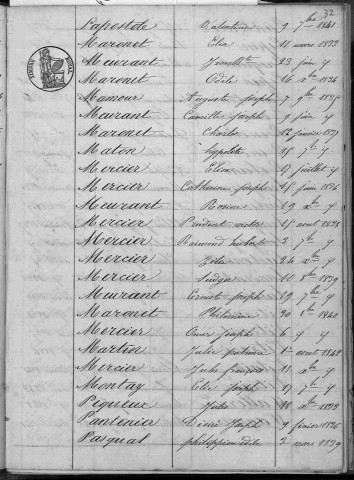 32
Lapostole Valentine 9 7bre 1841
Maronet Elie 11 mars 1833
Meurant 23 juin y
Maronet Odile 16 xbre 1834
Mamour Auguste Joseph 7 9bre
Meurant Camille Joseph 9 juin y
Maronet Charles 12 février 1837
Maton hippolite 25 7bre y
Mercier Elisa 17 juillet y
Mercier Catherine Joseph 25 juin 1836
Meurant Rosine 19 xbre y
Mercier Prudent victor 15 aout 1838
Mercier Raimond hubert 3 7bre y
Mercier Zélie 24 xbre y
Mercier 11 8bre 1839
Meurant Ernest Joseph 19 7bre y
Maronet Philomène 30 8bre 1840
Mercier Omer Joseph 6 y y
Martin Julie 1er aout 1842
Mercier Jules françois 11 xbre y
Montay Elie Joseph 17 7bre y
Piqueux Jules 18 xbre 1833
Pantenier Désiré Joseph 9 février 1836
Pasqual philippine odile 3 mars 1839